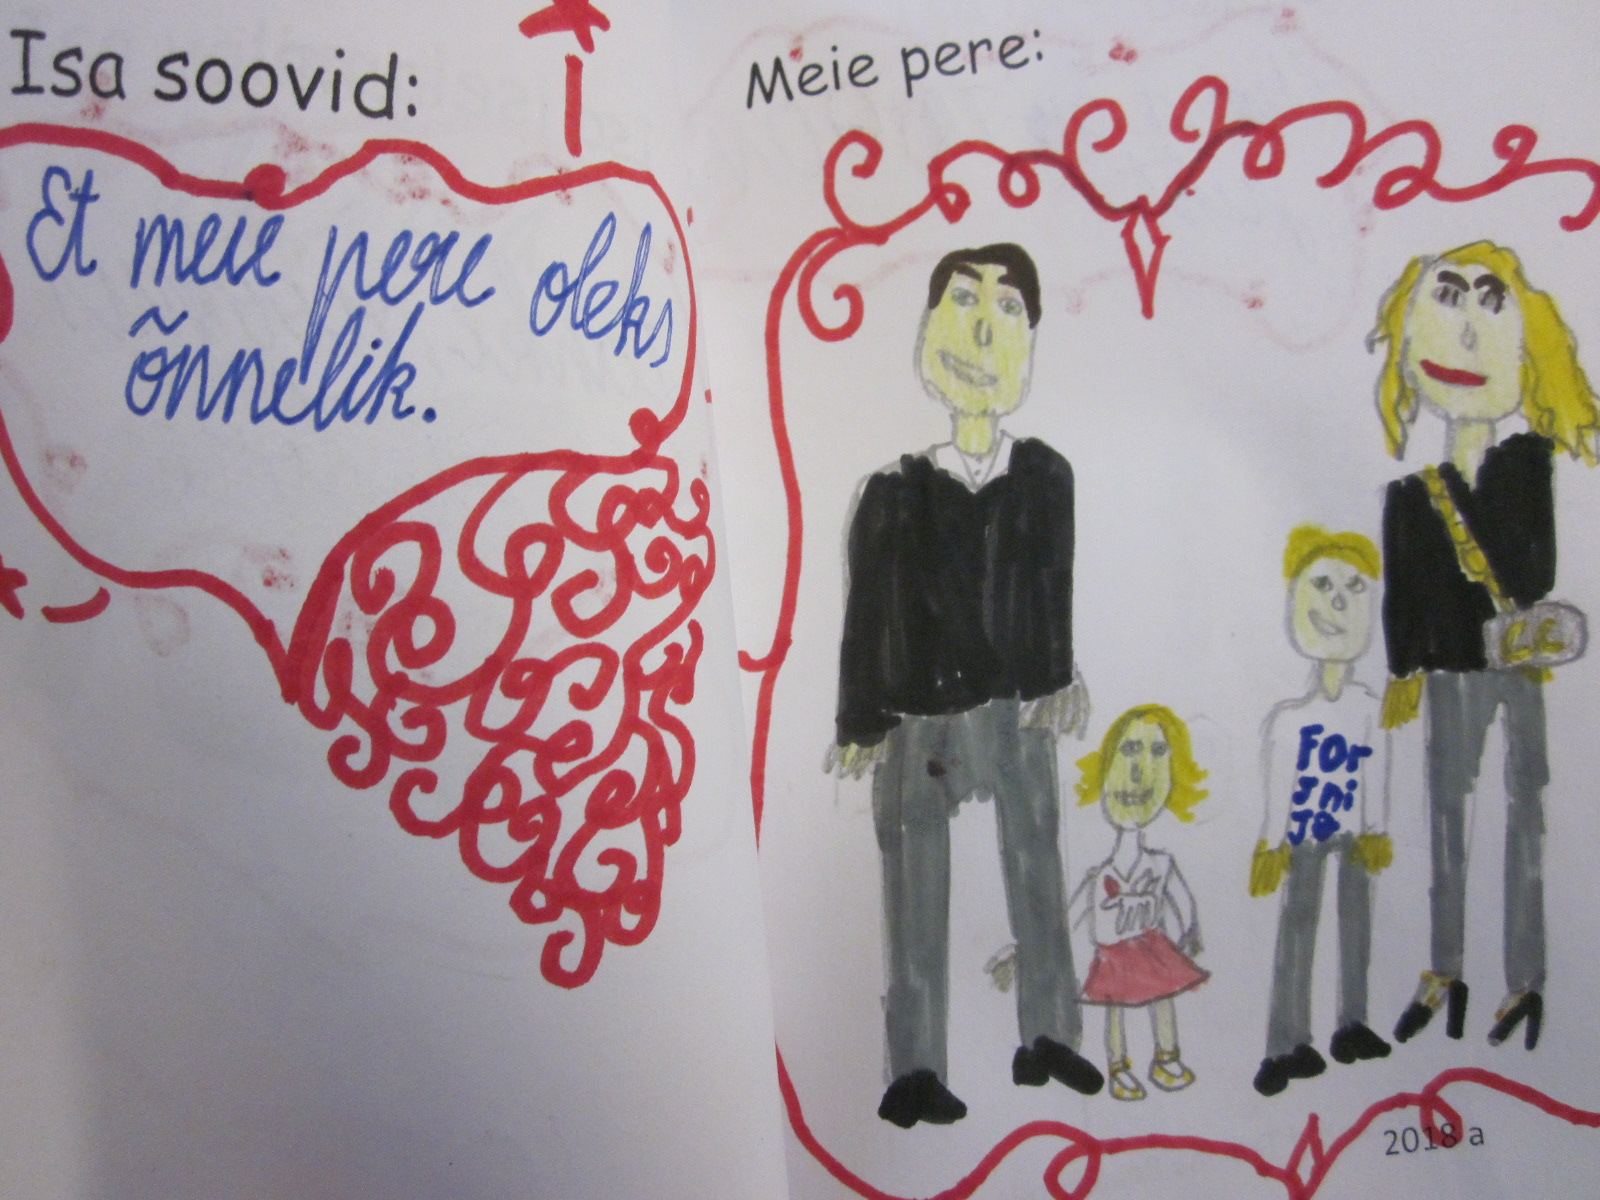 Isa soovid:
Et meie pere oleks
õnnelik.
Meie pere:
FOr
2018 a